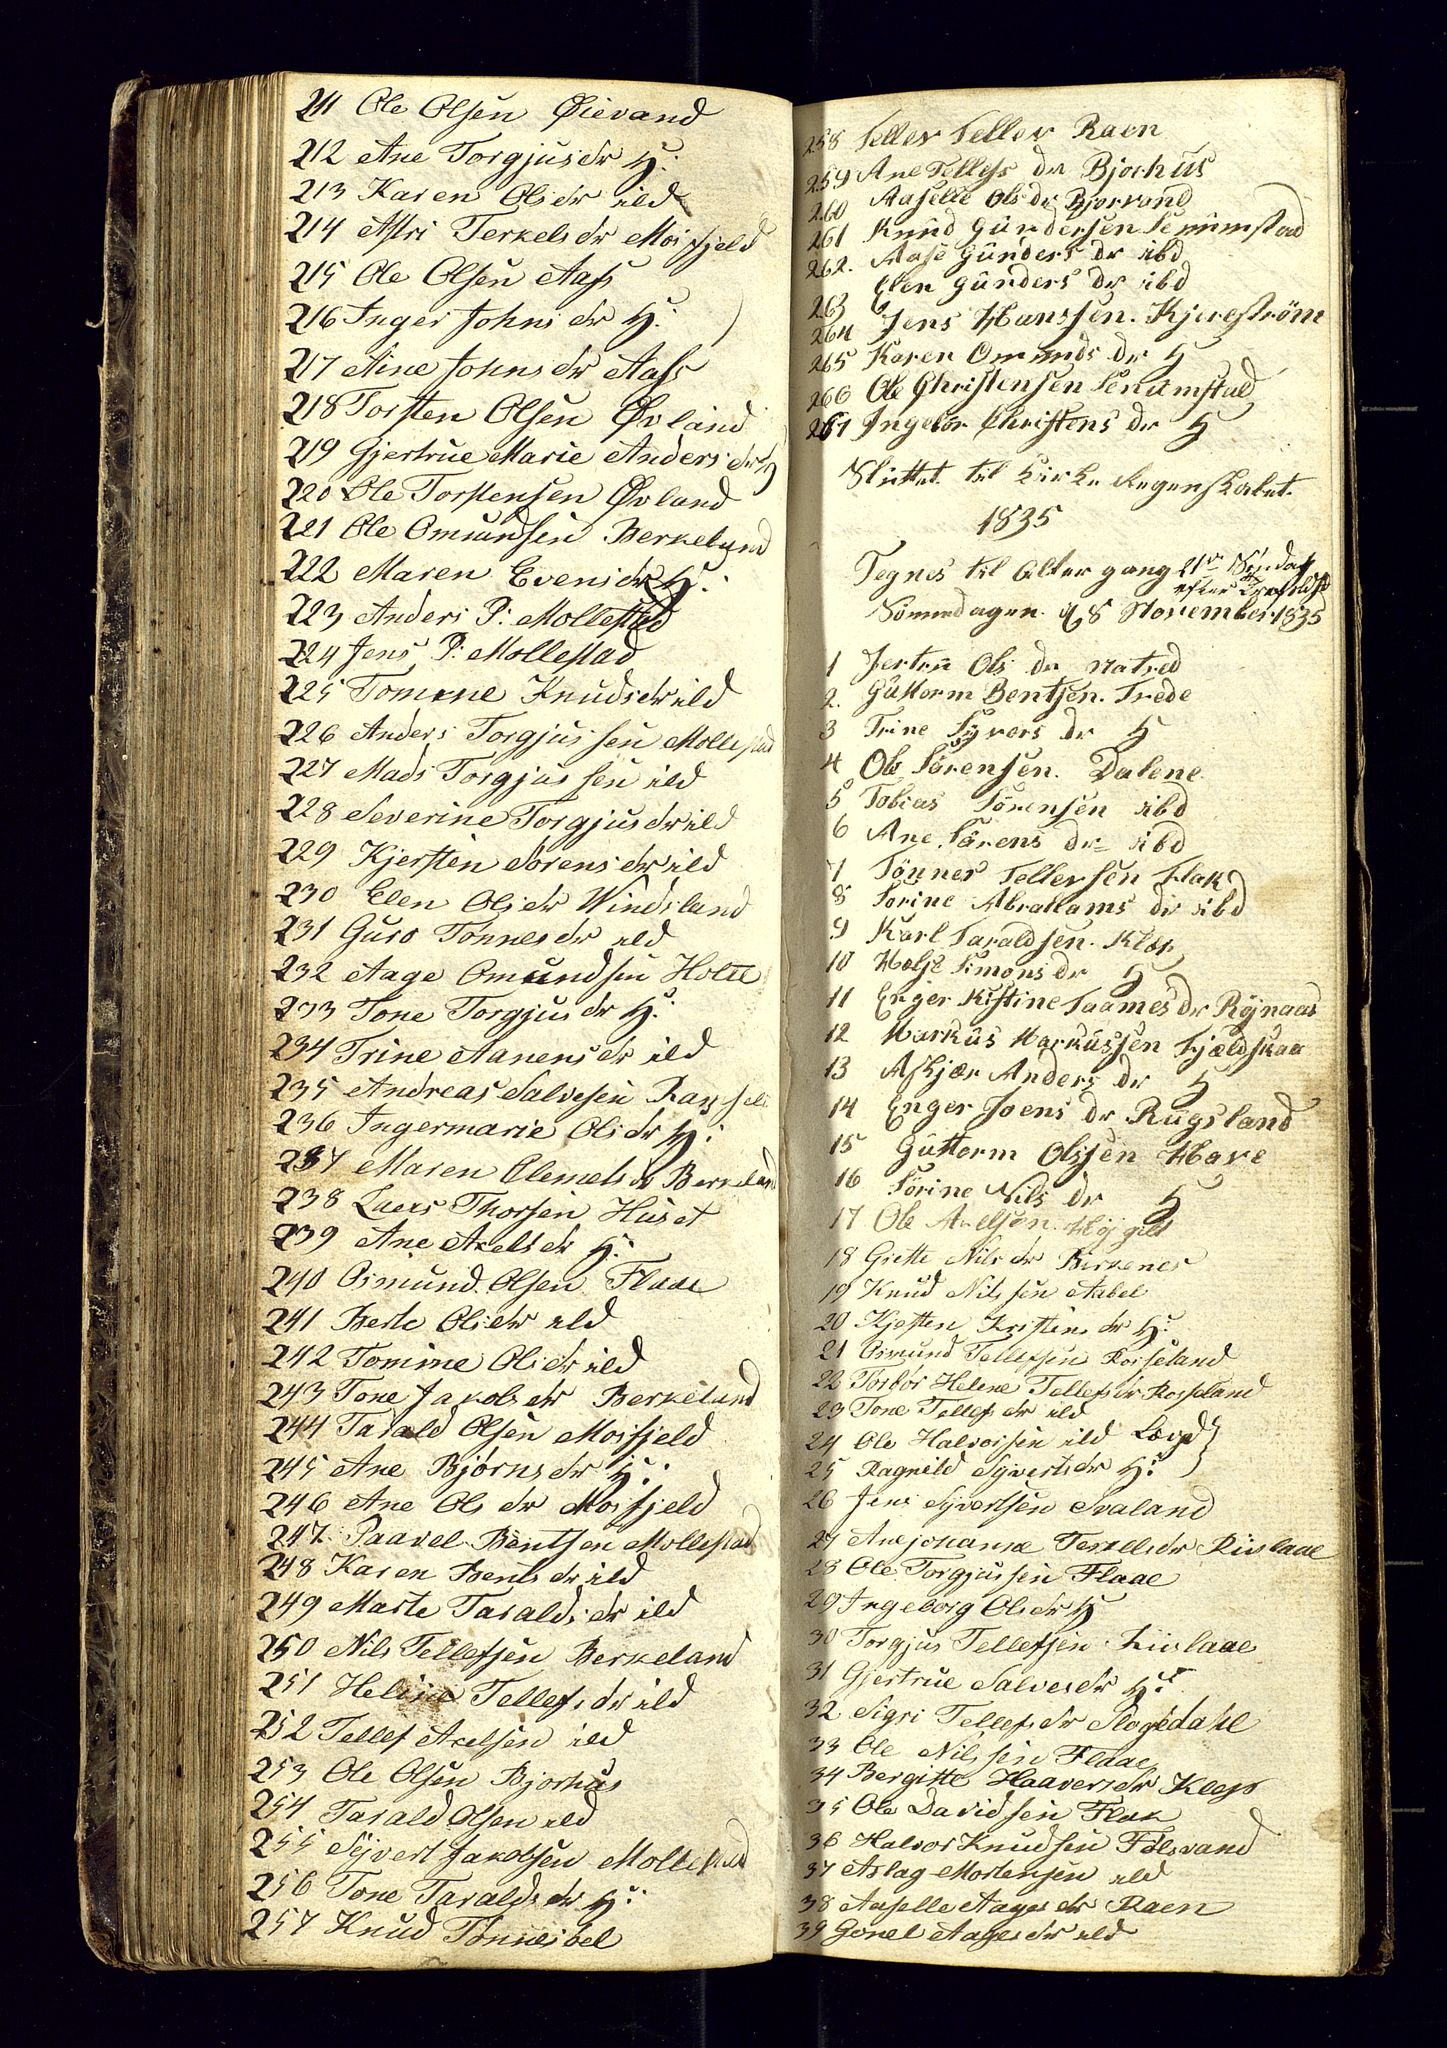 211 Ole Olsen Øievand
212 Ane Torgjusdr H:
213 Karen Olsdr ibd
214 Astri Terkelsdr Moisfjeld
215 Ole Olsen Aass
216 Inger Johnsdr H:
217 Aine Johnsdr Aass
218 Torsten Olsen Øvland
219 Gjertrue Marie Andersdr H
220 Ole Torstensen Øvland
221 Ole Omundsen Berkeland
222 Maren Evensdr H:
223 Anders P: Mollestad
224 Jens P: Mollestad
225 Tomine Knudsdr ibd
226 Anders Torgjussen Mollestad
227 Mads Torgjussen ibd
228 Severine Torgjusdr ibd
229 Kjersten Sørensdr ibd
230 Elen Olsdr Windsland
231 Guro Tønnesdr ibd
232 Aage Omundsen Holte
233 Tone Torgjusdr H:
234 Trine Aanensdr ibd
235 Andreas Salvesen
236 Ingermarie Olsdr H:
237 Maren Clemetsdr Berkeland
238 Laers Thorsen Huset
239 Ane Axelsdr H:
240 Osmund Olsen Flaae
241 Berte Olsdr ibd
242 Tomine Olsdr ibd
243 Tone Jakobsdr Berkeland
244 Tarald Olsen Moisfjeld
245 Ane Bjørnsdr H:
246 Ane Olsdr Moisfjeld
247 Paavel Bentsen Mollestad
248 Karen Bentsdr ibd
249 Marte Taraldsdr ibd
250 Nils Tellefsen Berkeland
251 Heline Tellefsdr ibd
252 Tellef Axelsen ibd
253 Ole Olsen Bjorhus
254 Tarald Olsen ibd
255 Syvert Jakobsen Mollestad
256 Tone Taraldsdr H:
257 Knud Tønnesøl
258 Tellev Tellev Raen
259 Ane Tellefs dr Bjorhus
260 Aaselle Ols dr Bjorvand
261 Knud Gundersen Senumstad
262. Aase Gunders dr ibd
263 Elen Gunders dr ibd
264 Jens Hanssen. Kjerestrøm
265 Karen Omunds dr H
266 Ole Christensen Senumstad
267 Ingebor Christens dr H
Sluttet til Kirke Regenskabet.
1835
Tegnes til Alter gang 21de Søndag
efter Trefoldf
Sonnedagen. d 8 November 1835
1 Jertru Ols dr Natved
2. Guttorm Bentsen. Trede
3 Trine Syvers dr H
4 Ole Sørensen. Dalene
5 Tobias Sørensen ibd
6 Ane Sørens dr ibd
7 Tønnes Tellevsen Flak
8 Sørine Abrahams dr ibd
9 Karl Taraldsen. Klep
10 Helje Simons dr H
11 Enger Kistine Taames dr Røjnaas
12 Markus Markussen Fjældskaa
13 Askjær Anders dr H
14 Enger Joens dr Rugsland
15 Guttorm Olssen Have
16 Sørine Nils dr H
17 Ole Axelsøn. Høygilt
18 Grette Nilsdr Birkenes
19 Knud Nilssen Aabel
20 Kjesten Kristensdr H:
21 Osmund Tellefsen Rosseland
22 Torbor Helene Tellefsdr Rosseland
23 Tone Tellefsdr ibd
24 Ole Halvorsen ibd Lægd}
25 Ragnild Syvertsdr H:
26 Jens Syvertsen Svaland
27 Anejohanne Terkelsdr Rislaae
28 Ole Torgjussen Flaae
29 Ingeborg Olsdr H
30 Torgjus Tellefsen Rislaae
31 Gjertrue Salvesdr H:
32 Sigri Tellefsdr Slogedahl
33 Ole Nilssen Flaae
34 Bergitte Haaversdr Klep
35 Ole Davidsen Flak
36 Halvor Knudsen Følsvand
37 Aslag Mortensen ibd
38 Aaselle Aagesdr Raen
39 Gonel Aagesdr ibd